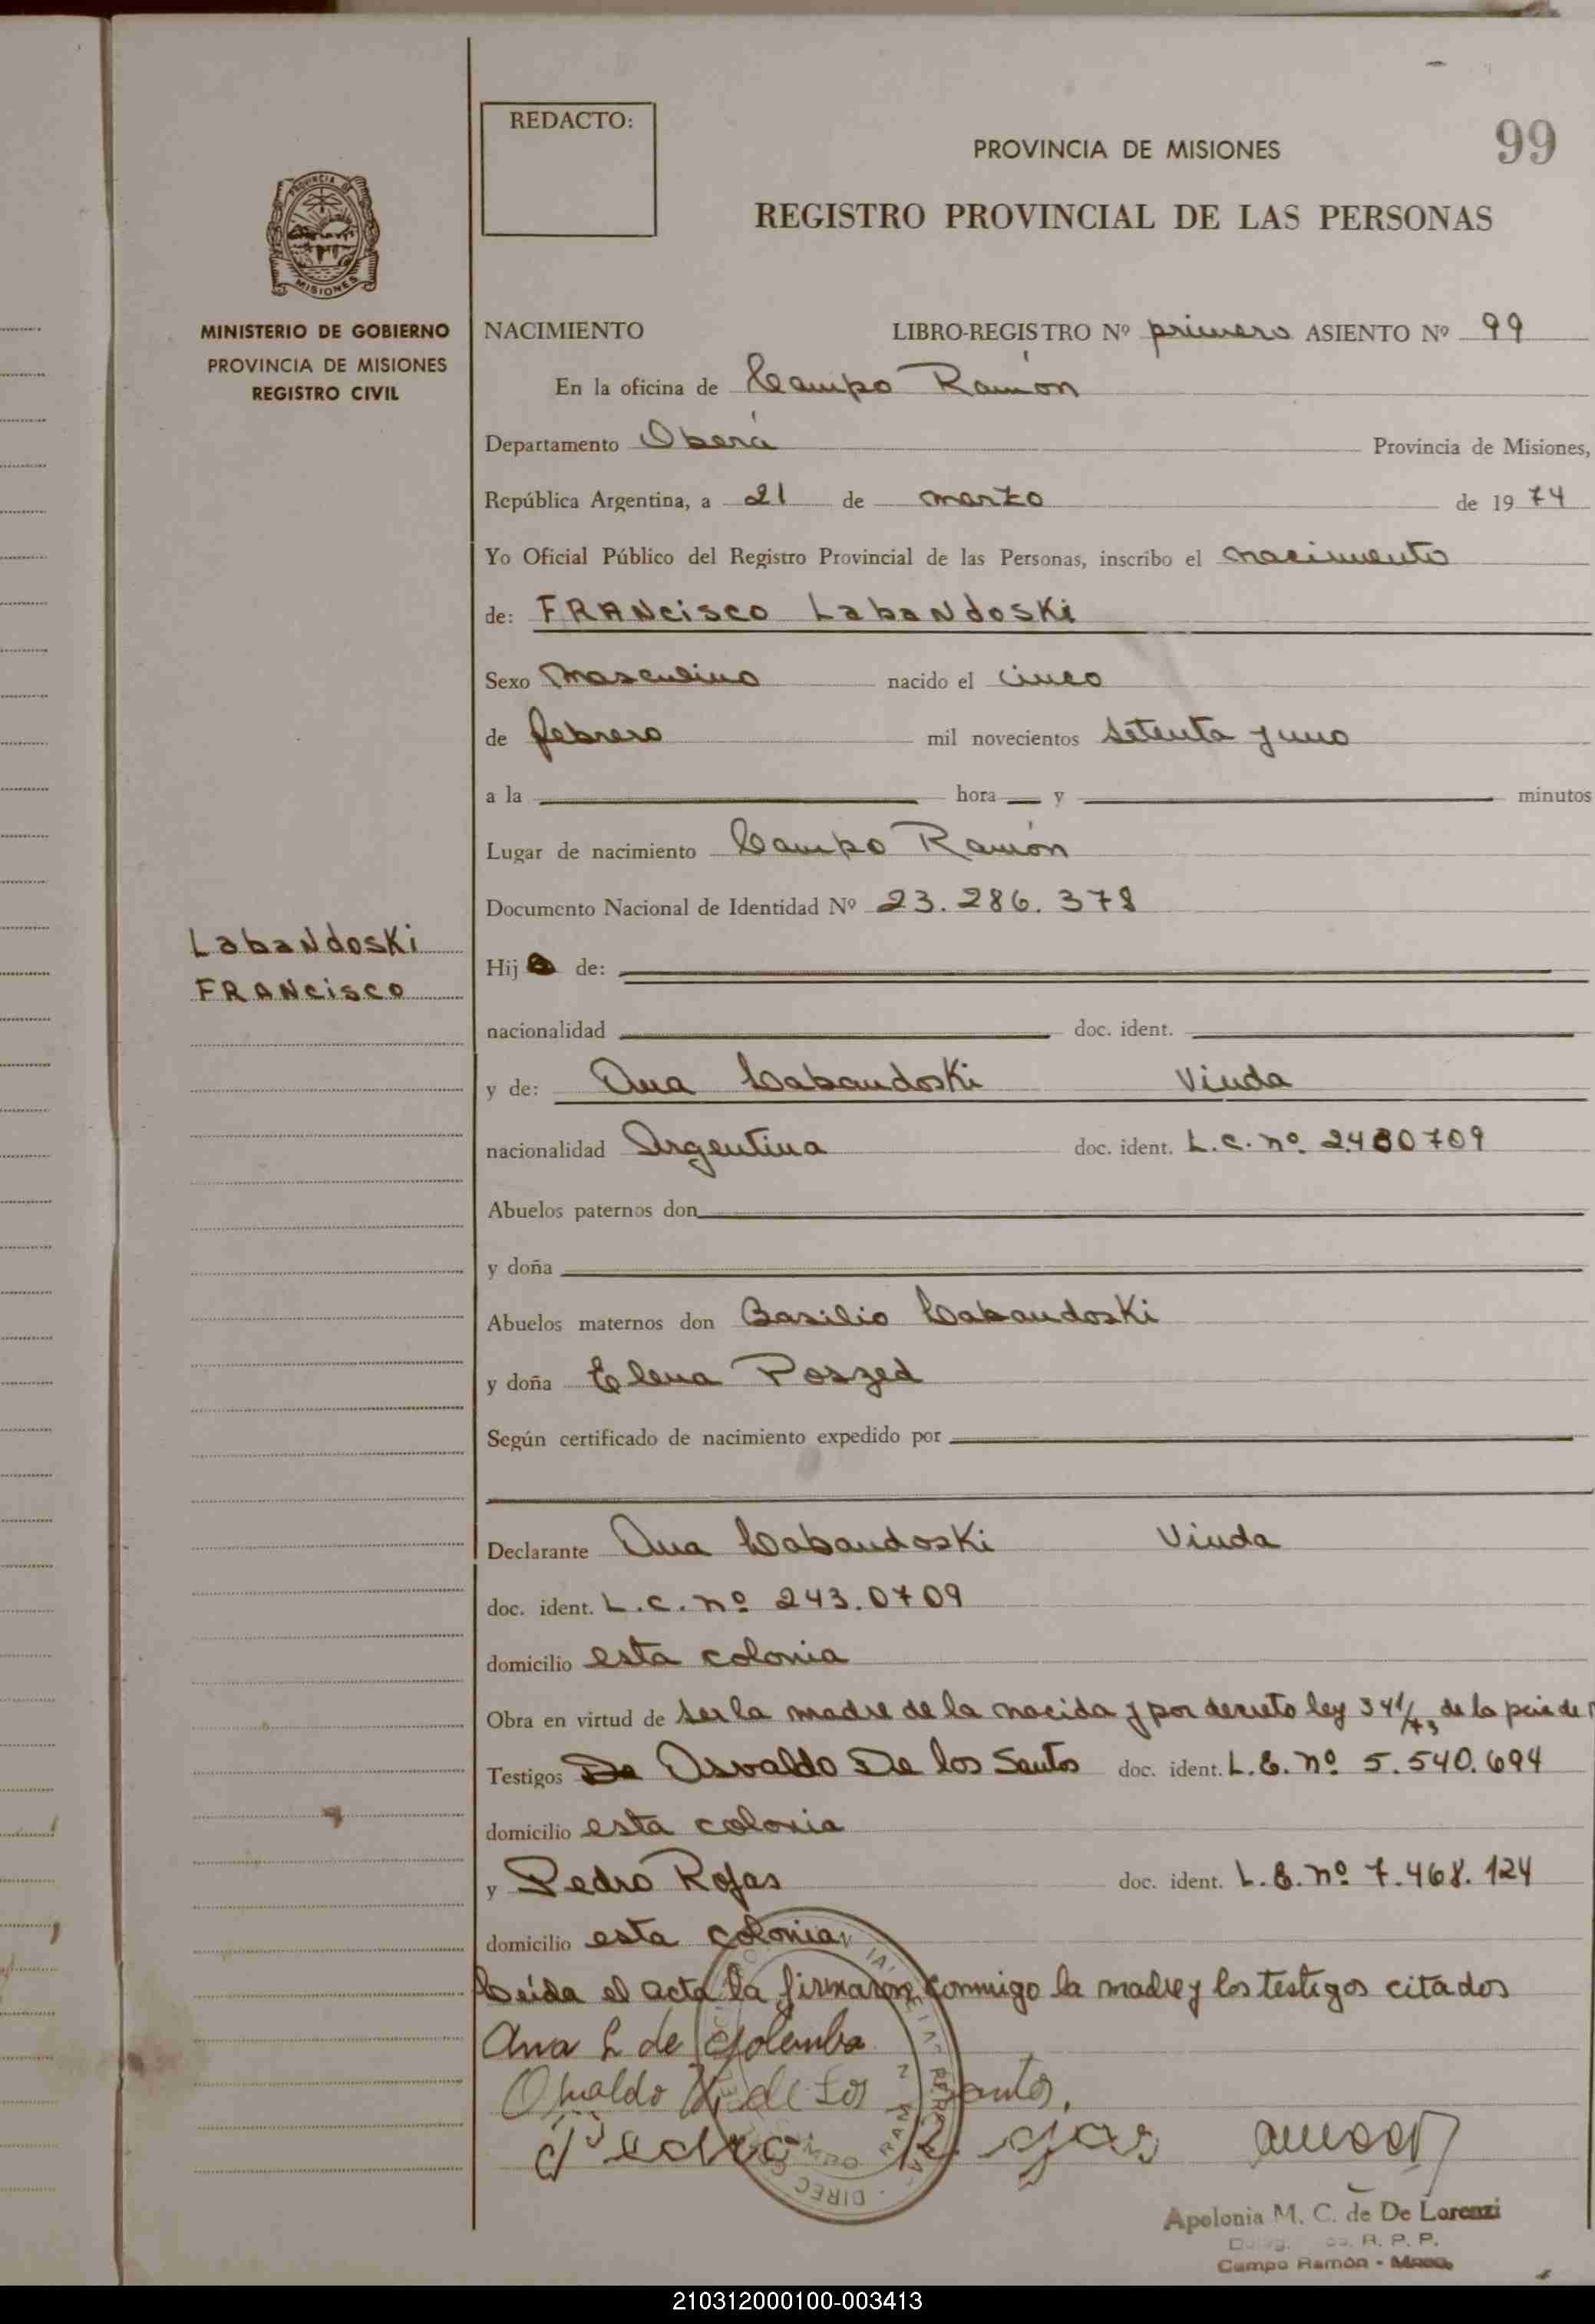 REDACTO:
PROVINCIA DE MISIONES
99
REGISTRO PROVINCIAL DE LAS PERSONAS
PROVINCIA DE
MISIONES
MINISTERIO DE GOBIERNO
PROVINCIA DE MISIONES
REGISTRO CIVIL
NACIMIENTO LIBRO-REGISTRO Nº primero ASIENTO Nº 99
En la oficina de Campo Ramón
Departamento Oberá Provincia de Misiones,
República Argentina, a 21 de marzo de 1974
Yo Oficial Público del Registro Provincial de las Personas, inscribo el nacimiento
de: FRANCISCO LABANDOSKI
Sexo masculino nacido el cinco
de febrero mil novecientos setenta y uno
a la hora y minutos
Lugar de nacimiento Campo Ramón
Documento Nacional de Identidad Nº 23.286.378
Labandoski
FRANCISCO
Hij de:
nacionalidad doc. ident.
y de: Ana Labandoski Viuda
nacionalidad Argentina doc. ident. L.C. nº 2430709
Abuelos paternos don
y doña
Abuelos maternos don Basilio Labandoski
y doña Elena Poszed
Según certificado de nacimiento expedido por
Declarante Ana Labandoski Viuda
doc. ident. L.C. nº 243.0709
domicilio esta colonia
Obra en virtud de ser la madre de la nacida y por decreto ley 341/73 de la
Testigos De Osvaldo De los Santos doc. ident. L.E. nº 5.540.694
domicilio esta colonia
y Pedro Rojas doc. ident. L.E. nº 7.468.124
domicilio esta colonia
Leída el acta la firmaron conmigo la madre y los testigos citados
Ana L de Golemba
Osvaldo de los Santos,
Pedro Rojas
Apolonia M. C. de De Lorenzi
R. P. P.
Campo Ramón - Mnes.
210312000100-003413